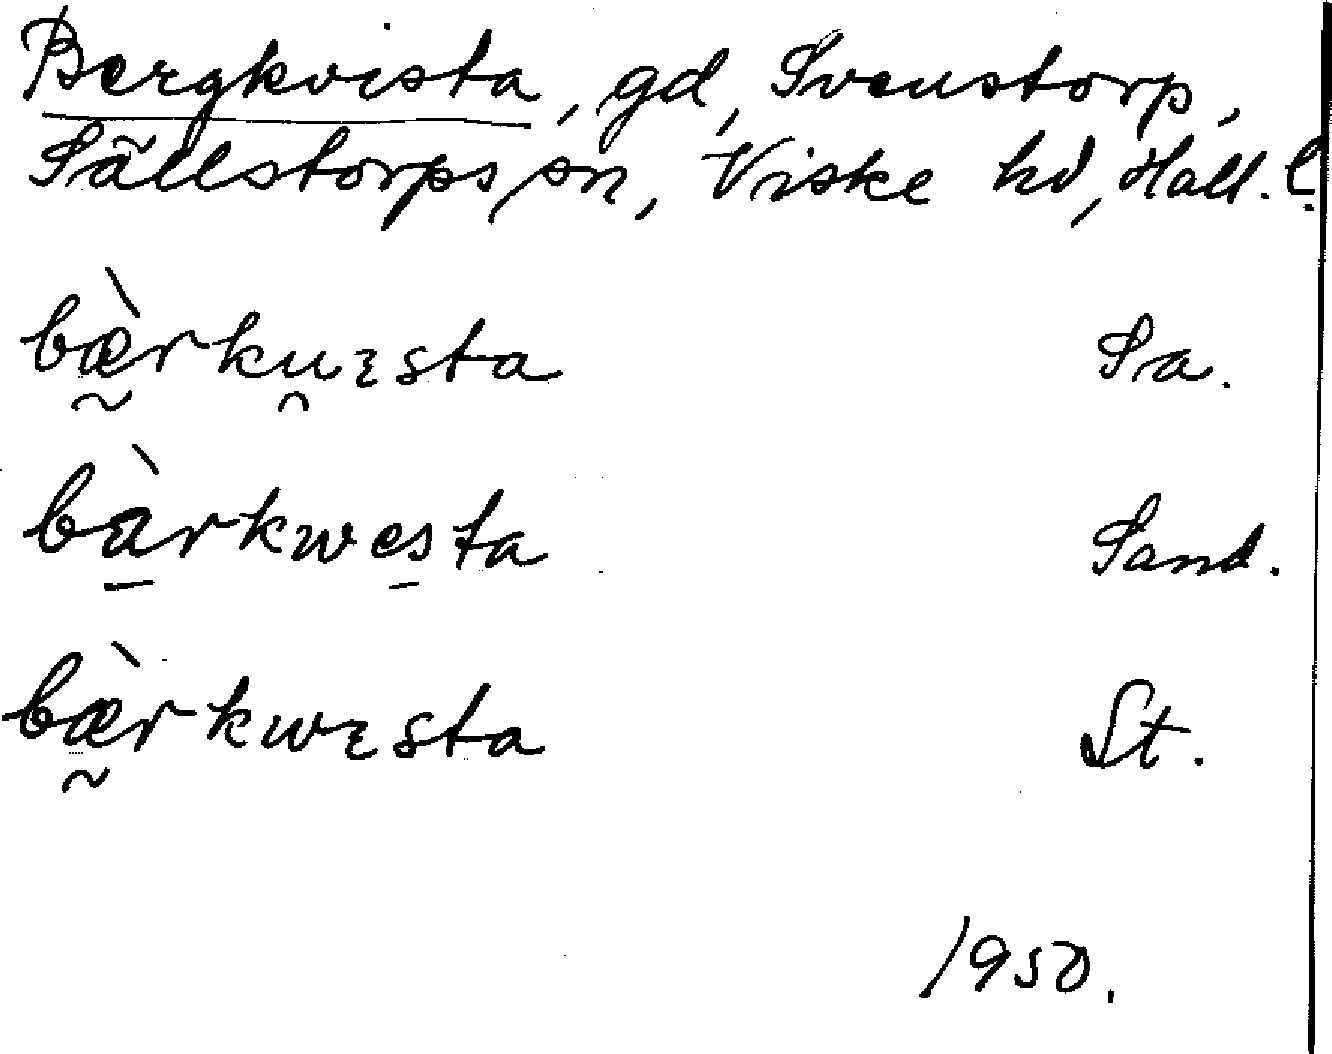 Bergkvista, gd, Svenstorp,
Sällstorps sn, Viske hd, Hall. l.
bæ̰̀rku̯ɛsta Sa.
bà̠rkwe̠sta Sand.
bæ̰̀rkwɛsta St.
1950.